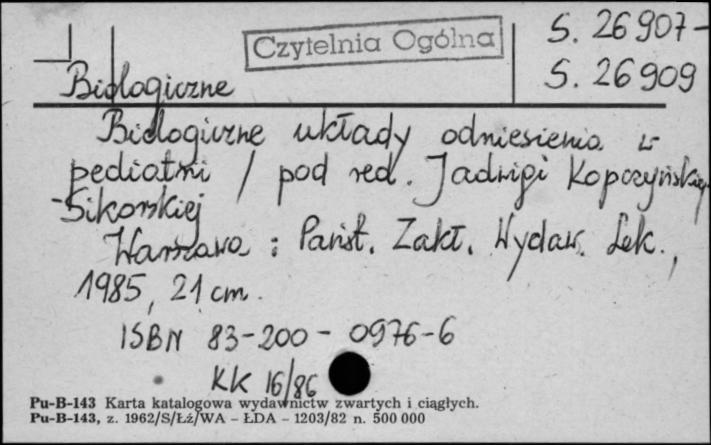 Czytelnia Ogólna
S. 26907-
S. 26909
Biologiczne
Biologiczne układy odniesienia w
pediatrii / pod red. Jadwigi Kopczyńskiej
-Sikorskiej
Warszawa : Państ. Zakł. Wydaw. Lek.,
1985, 21 cm.
ISBN 83-200-0976-6
KK 16/86
Pu-B-143 Karta katalogowa wydawnictw zwartych i ciągłych.
Pu-B-143, z. 1962/S/Łż/WA – ŁDA – 1203/82 n. 500 000